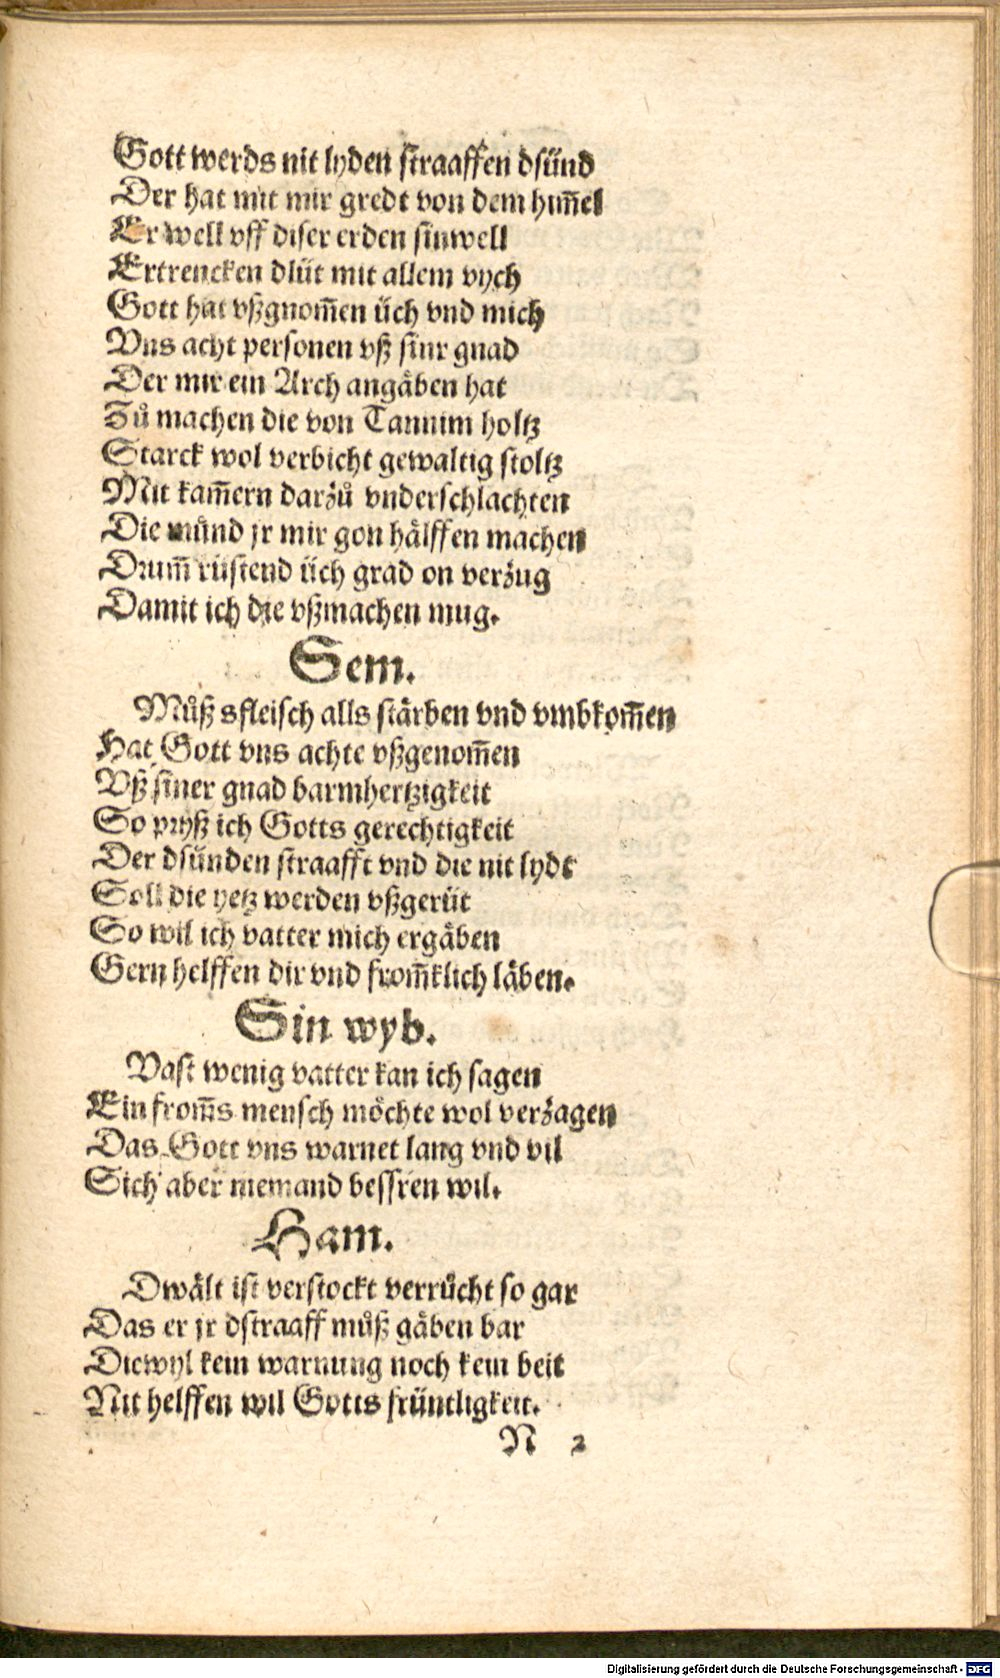 Gott werds nit lyden straaffen dsünd
Der hat mit mir gredt von dem him̅el
Er well vff diser erden sinwell
Ertrencken dlüt mit allem vych
Gott hat vßgnom̅en üch vnd mich
Vns acht personen vß sinr gnad
Der mir ein Arch angäben hat
Zů machen die von Tannim holtz
Starck wol verbicht gewaltig stoltz
Mit kam̅ern darzů vnderschlachten
Die můnd jr mir gon hälffen machen
Drum̅ rüstend üch grad on verzug
Damit ich die vßmachen mug.
Sem.
Můß sfleisch alls stärben vnd vmbkom̅en
Hat Gott vns achte vßgenom̅en
Vß siner gnad barmhertzigkeit
So pryß ich Gotts gerechtigkeit
Der dsünden straafft vnd die nit lydt
Soll die yetz werden vßgerüt
So wil ich vatter mich ergäben
Gern helffen dir vnd from̅klich läben.
Sin wyb.
Vast wenig vatter kan ich sagen
Ein from̅s mensch möchte wol verzagen
Das Gott vns warnet lang vnd vil
Sich aber niemand bessren wil.
Ham.
Dwält ist verstockt verrůcht so gar
Das er jr dstraaff můß gäben bar
Diewyl kein warnung noch kein beit
Nit helffen wil Gotts früntligkeit.
N 2
Digitalisierung gefördert durch die Deutsche Forschungsgemeinschaft - DFG